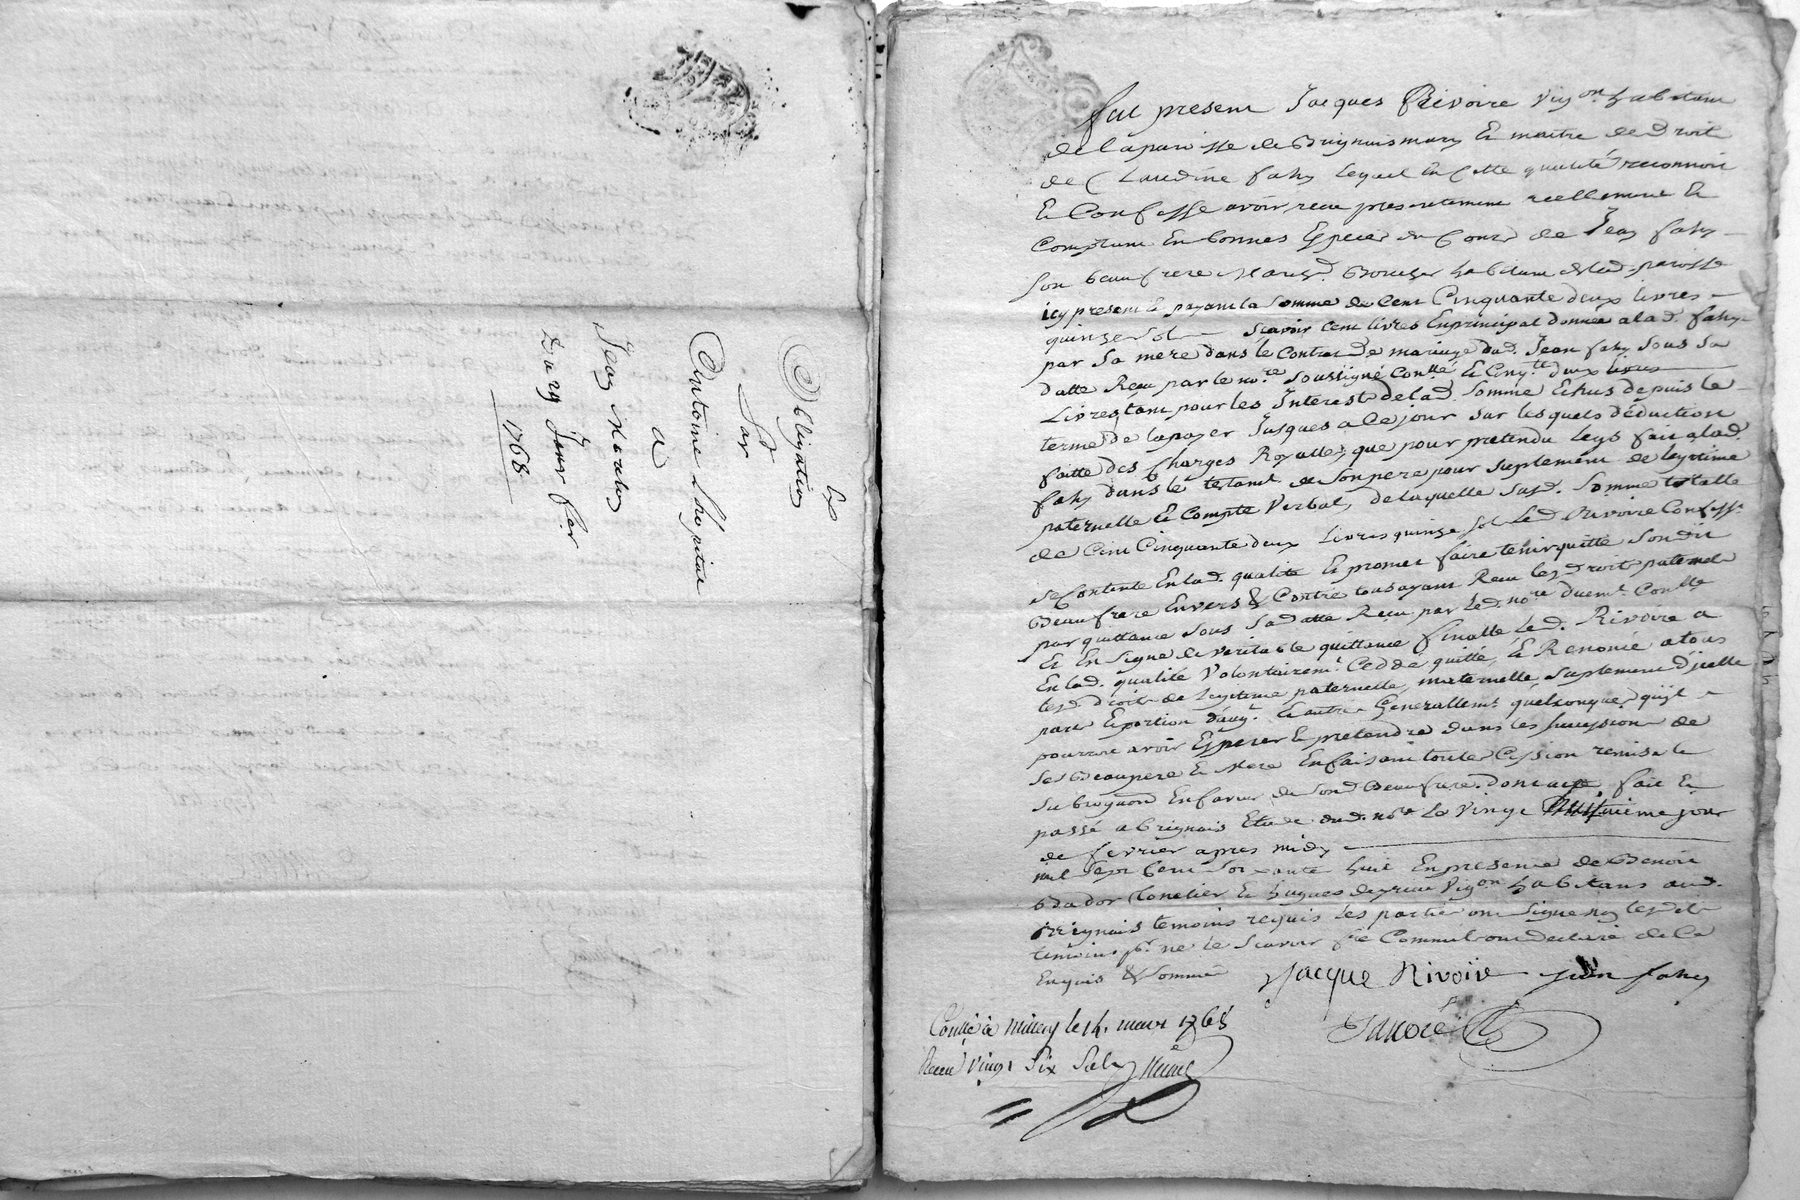 Exp
Obligation
Par
Antoine Lhopital
à
Jean
Du 29 Janv. fer
1768
fut present Jacques Rivoire Vig.on habitant
de la paroisse de Brignais mary et maitre des droits
de Claudine fahy lequel en Cette qualité reconnoit
et Confesse avoir receu presentement reellement et
Comptant en bonnes Especes du Cours de Jean fahy
son beaufrere march.d habitant de lad. paroisse
icy present et payant la somme de Cent Cinquante deux livres
quinze sols scavoir cent livres En principal donnée a lad. fahy
par sa mere dans le Contrat de mariage dud. Jean fahy sous sa
datte Reçu par le no.re soussigné Con.llé et Cinq.te deux livres
Livres tant pour les Interest de lad. somme Echus depuis le
terme de la payer Jusques a Ce jour sur lesquels déduction
faitte des Charges Royalles, que pour pretendu Legs fait a lad.
fahy dans le testam.t de son pere pour suplement de legitime
paternelle et Compte Verbal, de laquelle susd. Somme totalle
de Cent Cinquante deux Livres quinze sols led. Rivoire Confess.e
se Contente En lad. qualité Et promet faire tenir quitte son dit
Beaufrere Envers & Contre tous ayant Reçu les droits paternels
par quittance sous sa datte Reçu par led. no.re duem.t Con.llé
Et En signe de veritable quittance finalle led. Rivoire a
En lad. qualité Volontairem.t Ceddé quitté, et Renoncé a tous
lesd. droits de legitime paternelle, maternelle, suplement d'jcelle
part Et portion d'aug.t Et autres Generallem.t quelconques qu'jl
pourroit avoir Esperer et pretendre dans les succession de
ses Beaupere et Mere En faisant toutes Cession remise et
subrogation En faveur de sond. Beaufrere. Dont acte fait et
passé a Brignais Etude dud. no.re Le Vingt huitième jour
de fevrier apres midy
mil sept Cent soixante huit En presence de Benoit
Bador tonelier et hugues Vig.on habitans aud.
Brignais temoins requis les parties ont signé non lesd.
temoins p.r ne le scavoir f.re Comme ils ont declaré de Ce
Enquis & sommé
Jacque Rivoire Jean fahy
Conllé à Millery le 14. mars 1768
Receu Vingt Six Sols